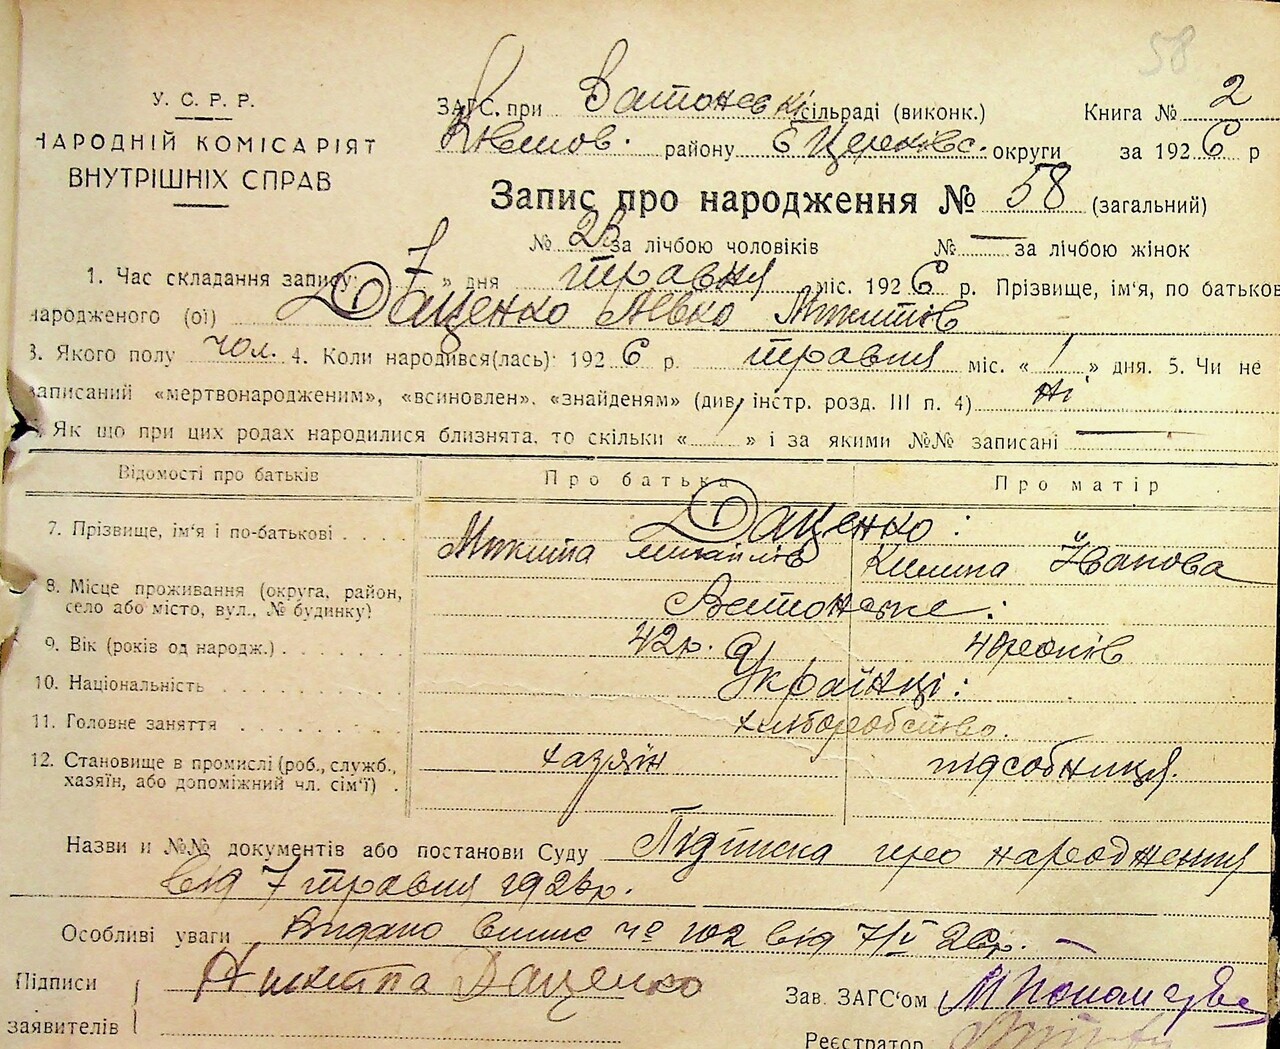 58
У. С. Р. Р.
НАРОДНІЙ КОМІСАРІЯТ
ВНУТРІШНІХ СПРАВ
ЗАГС. при Ватонськ сільраді (виконк.) Книга № 2
району Б Церківс. округи за 1926 р
Запис про народження № 58 (загальний)
№ за лічбою чоловіків № — за лічбою жінок
1. Час складання запису: 7 » дня травня міс. 1926 р. Прізвище, ім'я, по батьков
народженого (ої) Даценко Левко Микитів
3. Якого полу чол. 4. Коли народився(лась): 1926 р. травня міс. « 1 » дня. 5. Чи не
записаний «мертвонародженим», «всиновлен», «знайденям» (див. інстр. розд. III п. 4) ні
Як що при цих родах народилися близнята, то скільки « » і за якими №№ записані —
Відомості про батьків Про батька Про матір
7. Прізвище, ім'я і по-батькові . . . . Даценко:
Микита Михайлів Килина Іванова
8. Місце проживання (округа, район,
село або місто, вул., № будинку)
9. Вік (років од народж.) . . . . . . . 42р. 40 років
10. Національність . . . . . . . . . . Українці:
11. Головне заняття . . . . . . . . . хліборобство.
12. Становище в промислі (роб., служб.,
хазяїн, або допоміжний чл. сім'ї) . хазяїн підсобниця.
Назви и №№ документів або постанови Суду Підписка про народження
від 7 травня 1926р.
Особливі уваги Видано випис № 102 від 7/V 26р. —
Підписи
заявителів
Никита Даценко
Зав. ЗАГС'ом
Реєстратор